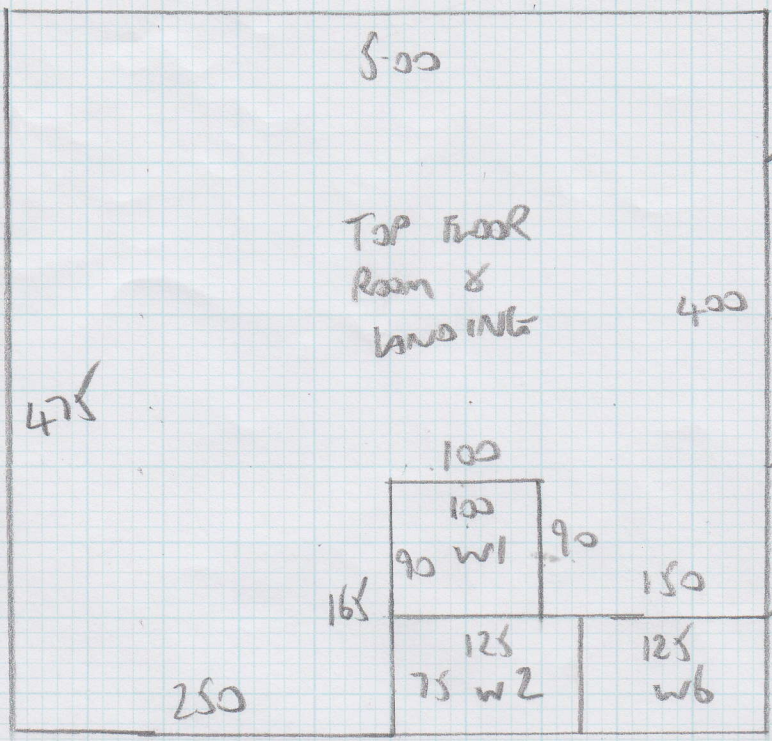 500
TOP FLOOR
ROOM &
LANDING
400
475
100
100
90 W1 90
165
150
125
75 W2
125
W6
250